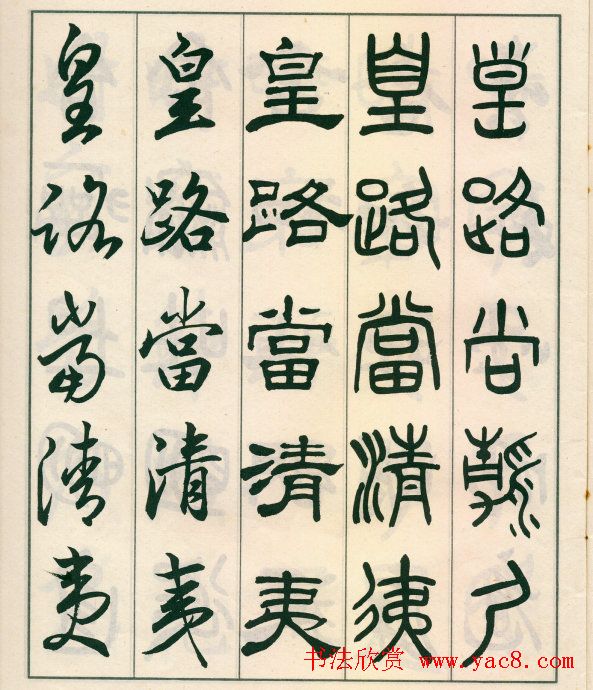 皇路當清夷
皇路當清夷
皇路當清夷
皇路當清夷
皇路當清夷
书法欣赏 www.yac8.com